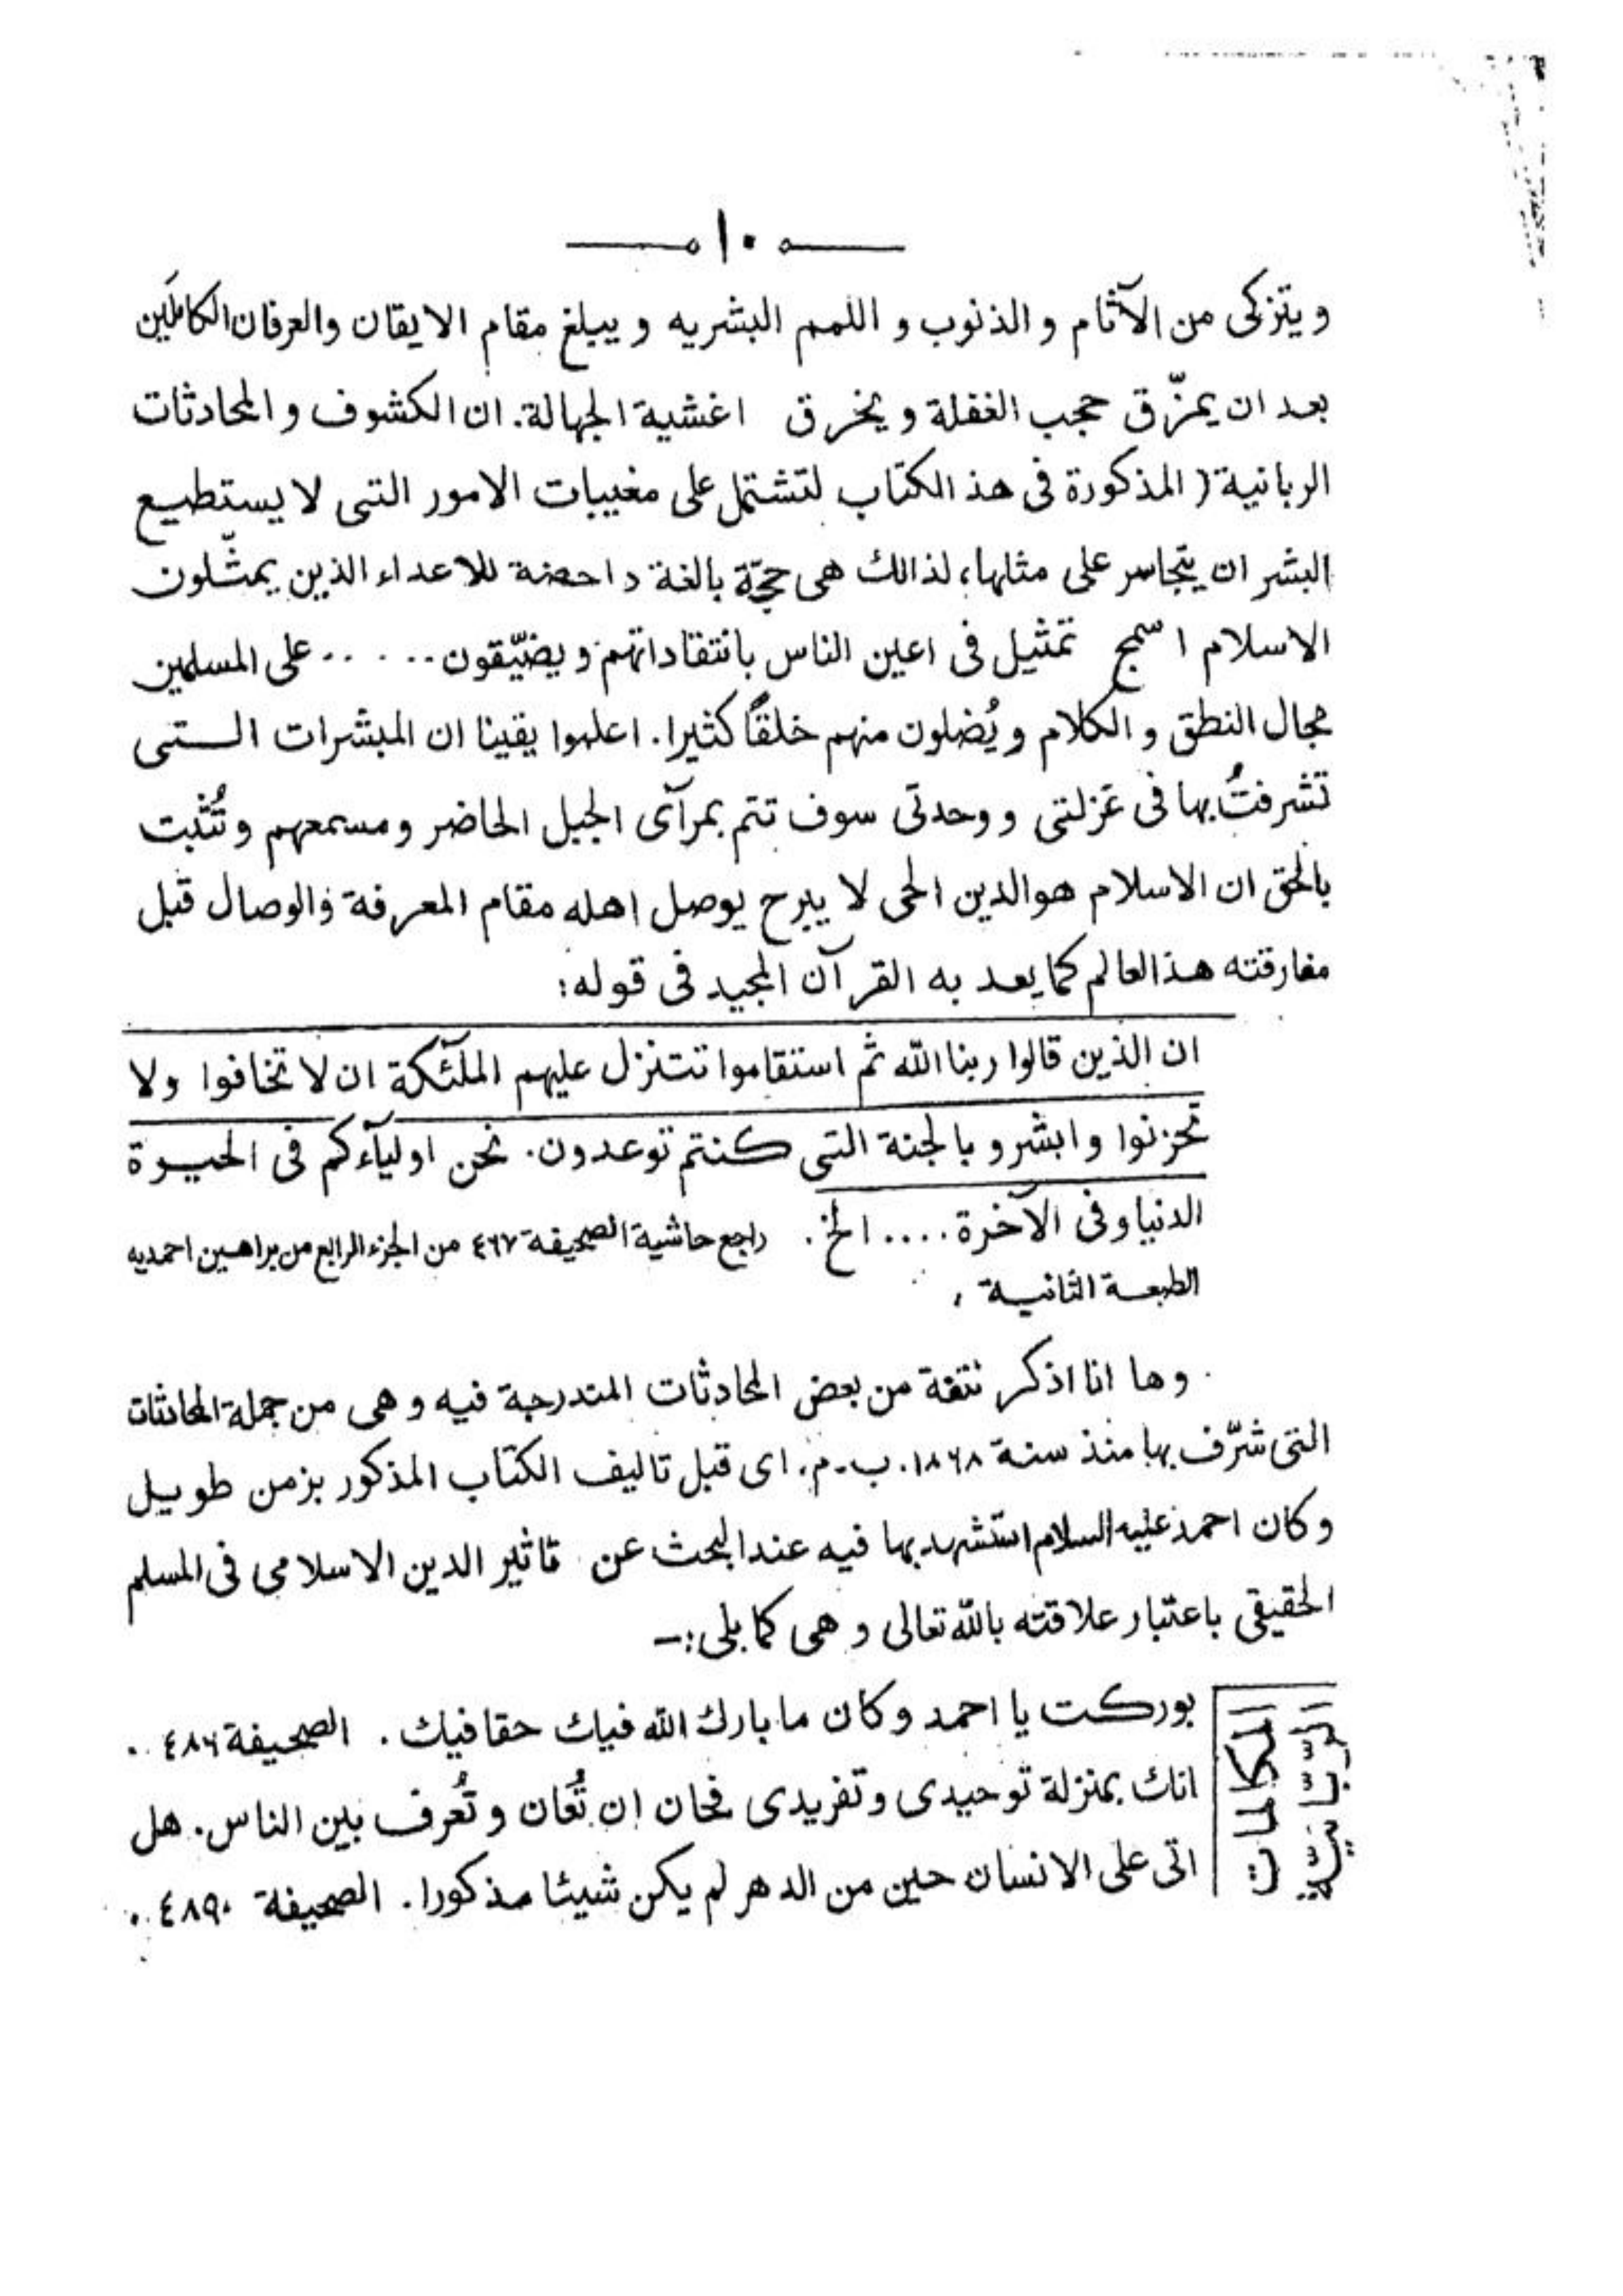 ١٠
ويتزكى من الآثام و الذنوب و اللمم البشريه و يبلغ مقام الايقان والعرفان الكاملَين
بعد ان يمزّق حجب الغفلة و يخرق اغشية الجهالة. ان الكشوف و المحادثات
الربانية ( المذكورة فى هذ الكتاب لتشتمل على مغيبات الامور التى لا يستطيع
البشر ان يتجاسر على مثلها، لذالك هى حجّة بالغة داحضة للاعداء الذين يمثّلون
الاسلام اسمج تمثيل فى اعين الناس بانتقاداتهم و يضيّقون ..... على المسلمين
مجال النطق و الكلام و يُضلون منهم خلقًا كثيرا. اعلموا يقينا ان المبشرات الستى
تشرفتُ بها فى عزلتى و وحدتى سوف تتم بمرآى الجيل الحاضر ومسمعهم و تُثبت
بالحق ان الاسلام هو الدين الحى لا يبرح يوصل اهله مقام المعرفة والوصال قبل
مفارقته هذ العالم كما يعد به القرآن المجيد فى قوله:
ان الذين قالوا ربنا الله ثم استقاموا تتنزل عليهم الملٓئكة ان لا تخافوا ولا
تحزنوا وابشرو بالجنة التى كنتم توعدون. نحن اوليآءكم فى الحيوة
الدنيا وفى الآخرة .... الخ. راجع حاشية الصحيفة ٤٦٧ من الجزء الرابع من براهين احمديه
الطبعة الثانية ،
وها انا اذكر نتفة من بعض المحادثات المندرجة فيه و هى من جملة المحادثات
التى شرّف بها منذ سنة ١٨٦٨ ب.م. اى قبل تاليف الكتاب المذكور بزمن طويل
وكان احمد عليه السلام استشهد بها فيه عند البحث عن تاثير الدين الاسلامى فى المسلم
الحقيقى باعتبار علاقته بالله تعالى و هى كما يلى :-
الكلمات
الرّبّانيّة
بوركت يا احمد وكان ما بارك الله فيك حقا فيك. الصحيفة ٤٨٦.
انك بمنزلة توحيدى وتفريدى فحان ان تُعان و تُعرف بين الناس. هل
اتى على الانسان حين من الدهر لم يكن شيئا مذكورا. الصحيفة ٤٨٩.